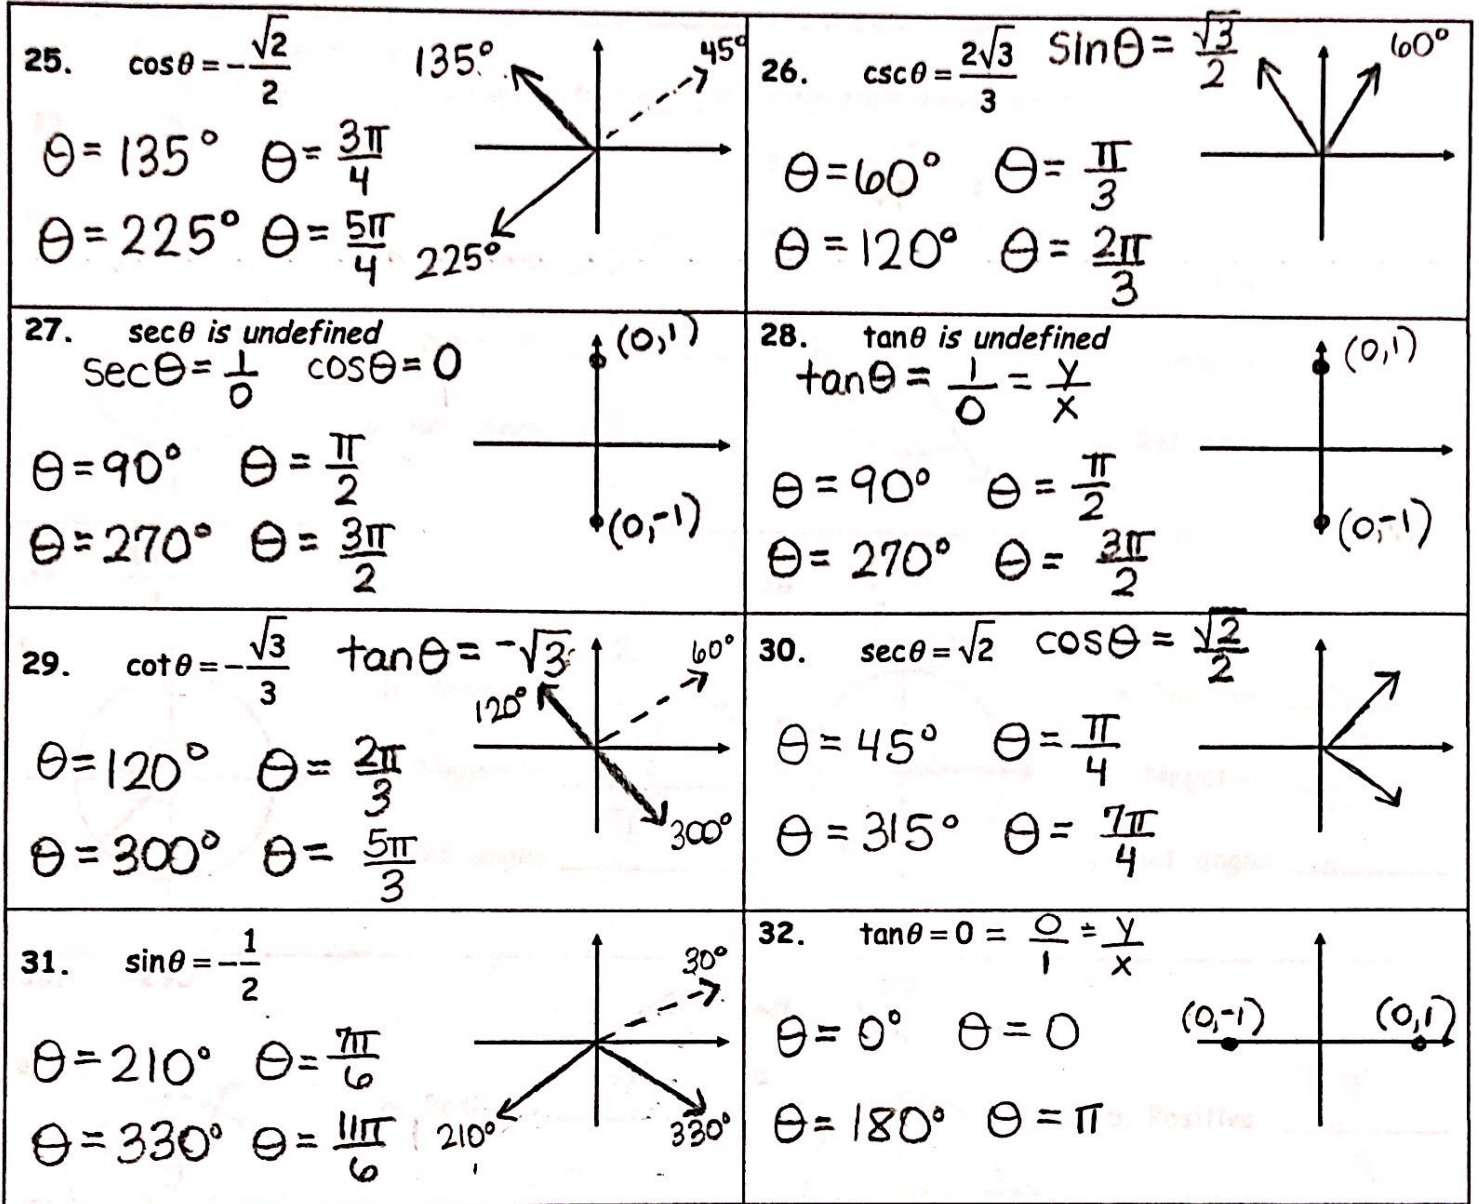 25. cosθ = -√2/2 135° 45°
θ = 135° θ = 3π/4
θ = 225° θ = 5π/4 225°
26. cscθ = 2√3/3 sinθ = √3/2 60°
θ = 60° θ = π/3
θ = 120° θ = 2π/3
27. secθ is undefined (0,1)
secθ = 1/0 cosθ = 0
θ = 90° θ = π/2
θ = 270° θ = 3π/2 (0,-1)
28. tanθ is undefined (0,1)
tanθ = 1/0 = y/x
θ = 90° θ = π/2
θ = 270° θ = 3π/2 (0,-1)
29. cotθ = -√3/3 tanθ = -√3 60°
120°
θ = 120° θ = 2π/3
θ = 300° θ = 5π/3 300°
30. secθ = √2 cosθ = √2/2
θ = 45° θ = π/4
θ = 315° θ = 7π/4
31. sinθ = -1/2 30°
θ = 210° θ = 7π/6
θ = 330° θ = 11π/6 210° 330°
32. tanθ = 0 = 0/1 = y/x
θ = 0° θ = 0 (0,-1) (0,1)
θ = 180° θ = π